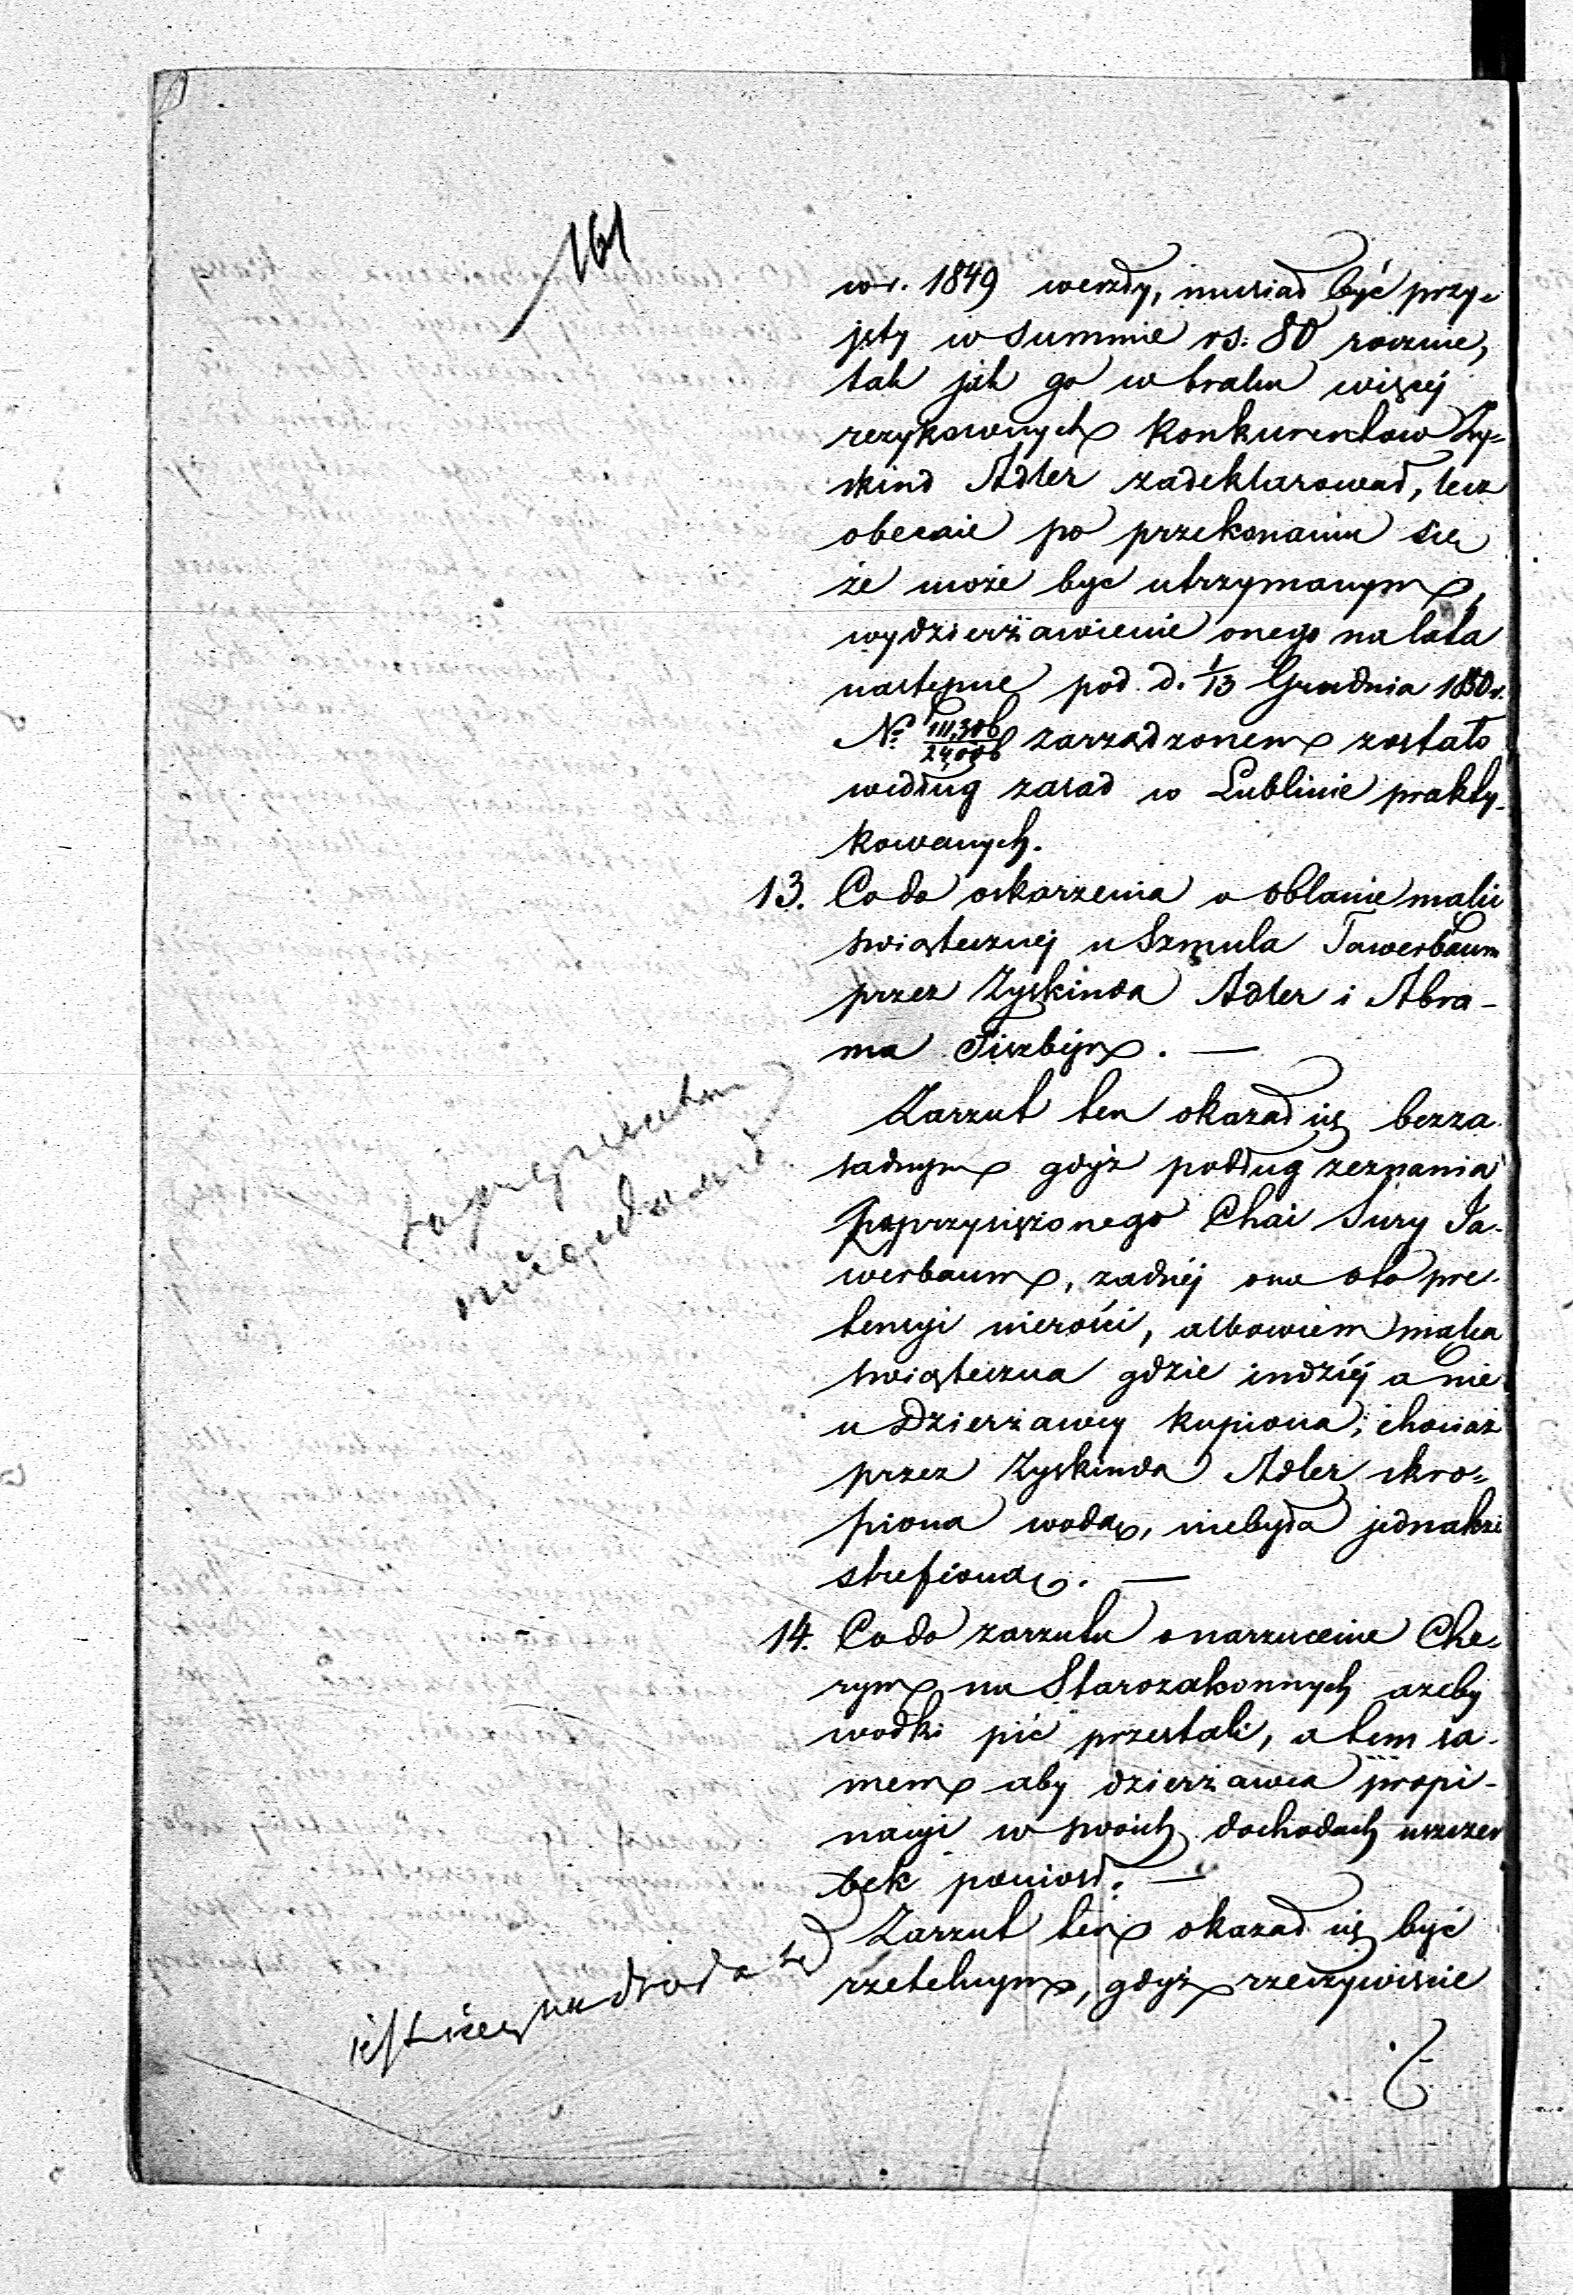 161
w r. 1849 weszły, musiał być przy=
jęty w summie rs: 80 rocznie,
tak jak go w braku więcej
rezykownych konkurentow Zy=
skind Adler zadeklarował, lecz
obecnie po przekonaniu się
że może byc utrzymanym,
wydzierżawienie onego na lata
nastepne pod d. 1/13 Grudnia 1850 r.
No 111,306/24,008 zarządzonem zostało
według zasad w Lublinie prakty-
kowanych.
13. Co do oskarzenia o oblanie malic
swiątecznej u Szmula Tawerbaum
przez Zyskinda Adler i Abra-
ma Fiszbejn. —
Zarzut ten okazał się bezza-
sadnym gdyż podług zeznania
poprzysiężonego Chai Sury Ta-
werbaum, zadnéj ona o to pre-
tensyi nierości, albowiem malca
swiąteczna gdzie indziéj a nie
u Dzierzawcy kupiona, chociaż
przez Zyskinda Adler skro=
piona wodą, niebyła jednakże
strefioną. —
14. Co do zarzutu o narzucenie Che=
rym na Starozakonnych azeby
wodki pić przestali, a tem sa-
mem aby dzierżawca propi-
nacyi w swoich dochodach uszczer
bek poniosł. —
Zarzut ten okazał się być
rzetelnym, gdyż rzeczywiscie